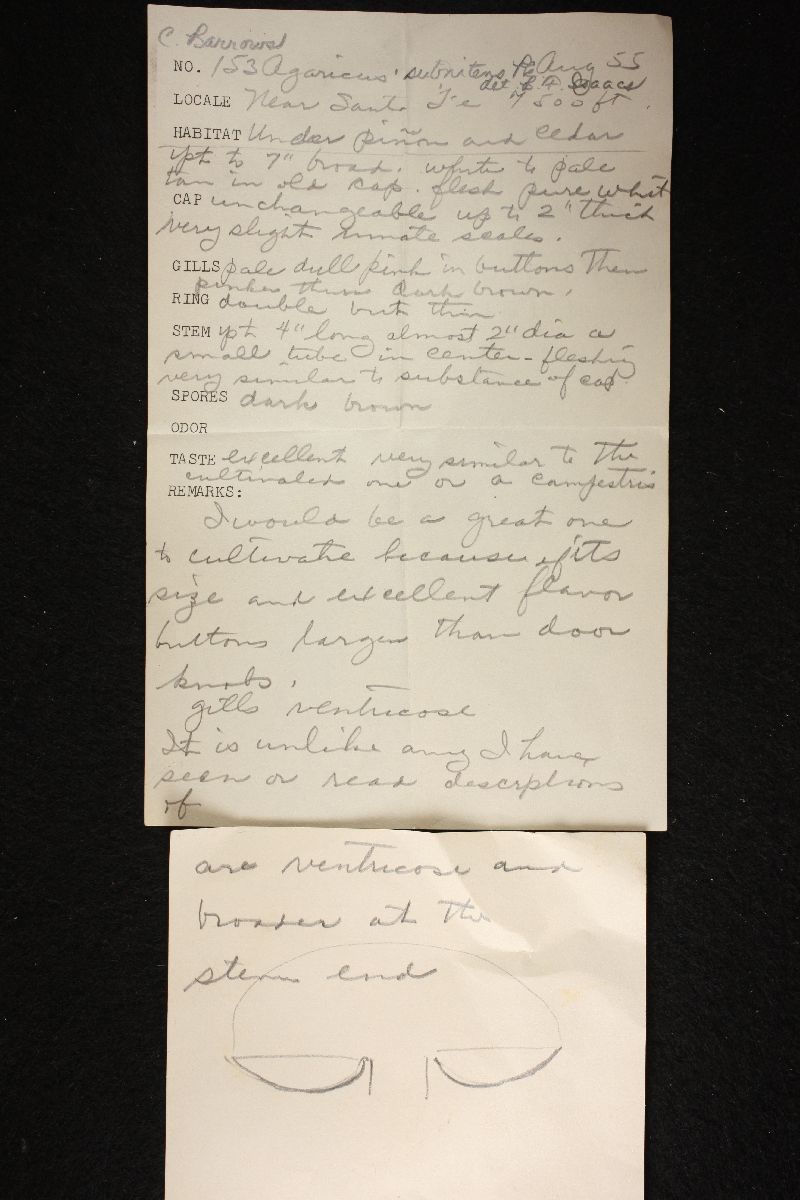 C. Barrows
NO. 153 Agaricus subnitens Pk Aug 55
det B.F. Isaacs
LOCALE Near Santa Fe 7500 ft.
HABITAT Under piñon and cedar
upt to 7" broad. white to pale
tan in old cap. flesh pure whit
CAP unchangeable up to 2" thick
very slight innate scales.
GILLS pale dull pink in buttons then
pinker then dark brown.
RING double but thin
STEM upt 4" long almost 2" dia a
small tube in center - fleshy
very similar to substance of cap.
SPORES dark brown
ODOR
TASTE excellent very similar to the
cultivated one or a campestris
REMARKS:
I would be a great one
to cultivate because of its
size and excellent flavor
buttons larger than door
knobs.
gills ventricose
It is unlike any I have
seen or read descrptions
of
are ventricose and
broader at the
stem end